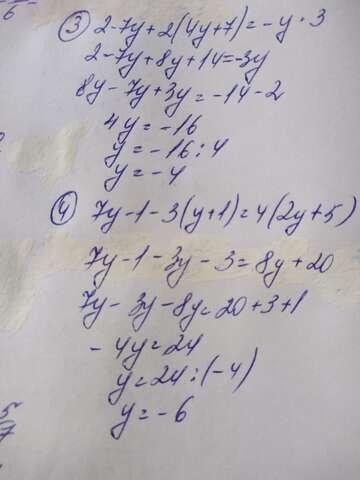 6
③ 2-7y+2(4y+7)=-y·3
2-7y+8y+14=-3y
8y-7y+3y=-14-2
4y=-16
y=-16:4
y=-4
④ 7y-1-3(y+1)=4(2y+5)
7y-1-3y-3=8y+20
7y-3y-8y=20+3+1
-4y=24
y=24:(-4)
y=-6
5
7